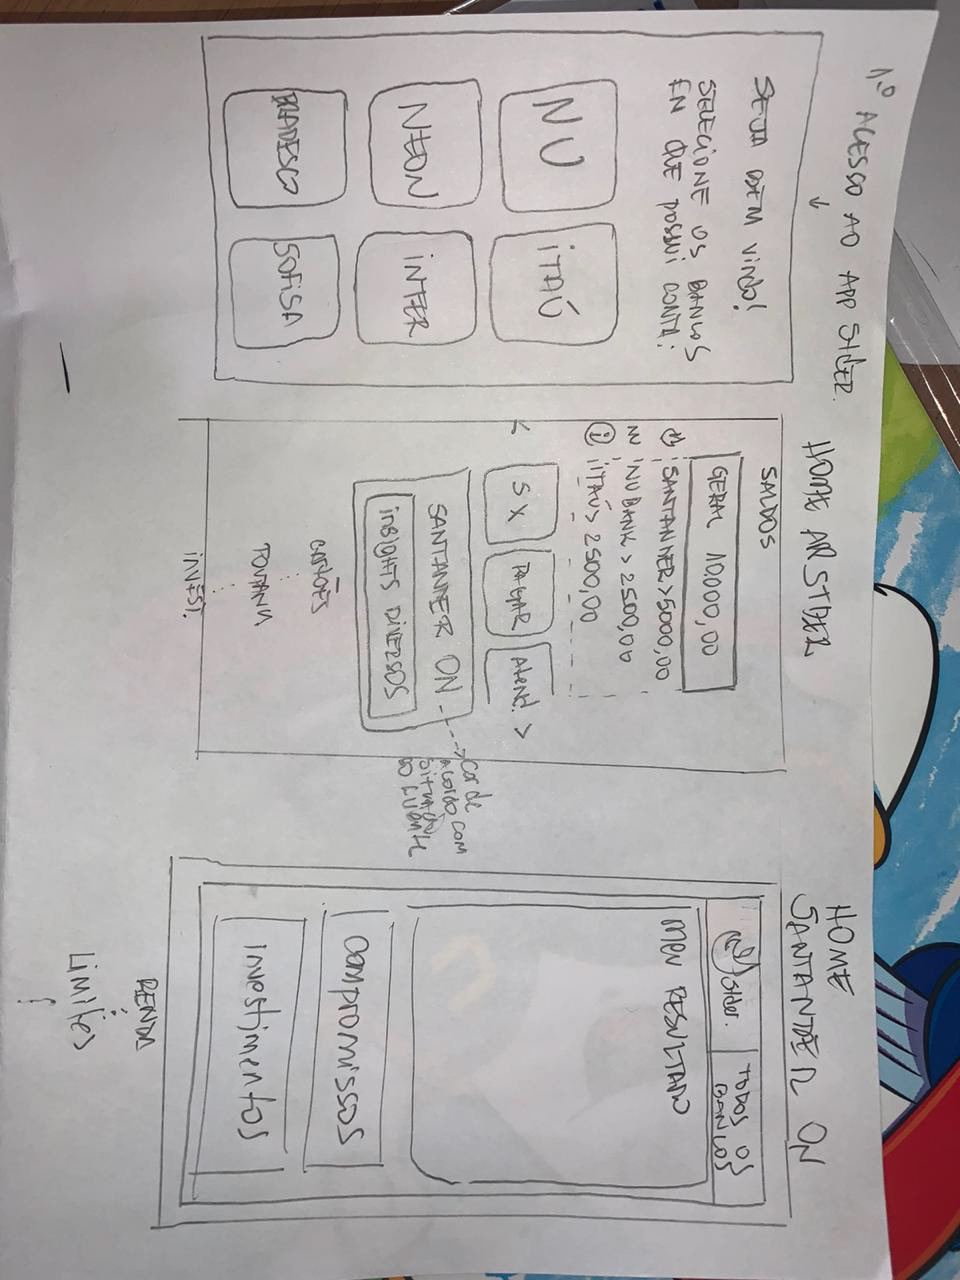 1º ACESSO AO APP STDER.
↓
SEJA BEM VINDO!
SELECIONE OS BANCOS
EM QUE POSSUI CONTA:
NU
ITAÚ
NEON
INTER
BRADESCO
SOFISA
HOME APP STDER
SALDOS
GERAL 10000,00
SANTANDER > 5000,00
NU NUBANK > 2500,00
i ITAÚ > 2500,00
< SX
PAGAR
Atend. >
SANTANNER ON
INSIGHTS DIVERSOS
Cor de
acordo com
situação
do cliente
CARTÕES
POUPANÇA
INVEST.
HOME
SANTANDER ON
Stder.
TODOS OS
BANCOS
MEU RESULTADO
Compromissos
Investimentos
RENDA
Limites